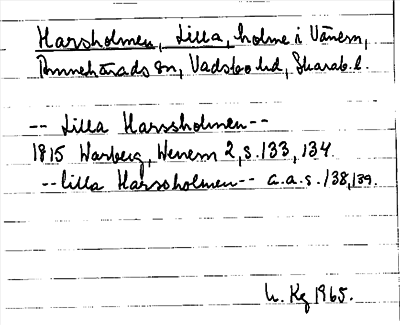 Harsholmen, Lilla, holme i Vänern,
Amnehärads sn, Vadsbo hd, Skarab. l.
-- Lilla Harssholmen --
1815 Warberg, Wenern 2, s. 133, 134.
-- lilla Harssholmen -- a.a.s. 138, 139.
h. Kg 1965.